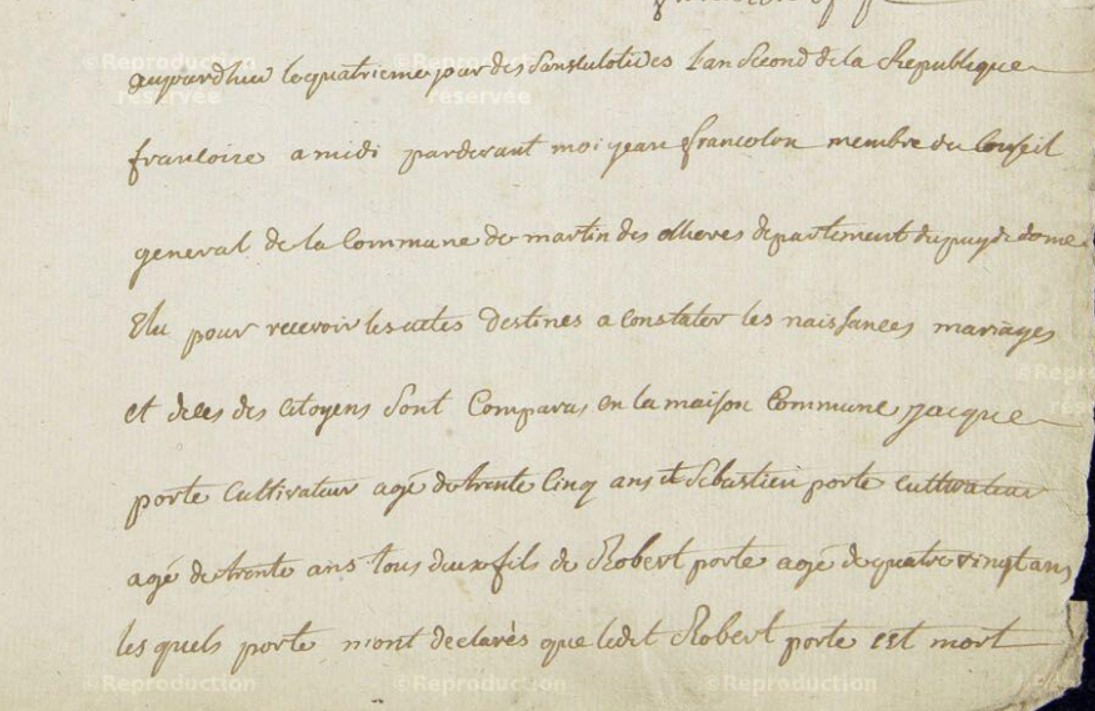 aujourdhui le quatrieme jour des Sansculotides Lan Second de la Republique
francoise a midi pardevant moi jean francolon membre du Conseil
general de la Commune de martin des olieres departement du puy de dome
Elu pour recevoir les actes destines a constater les naissances mariages
et deces des citoyens Sont Comparus en la maison Commune jacque
porte Cultivateur agé de trente Cinq ans et Sebastien porte cultivateur
agé de trente ans tous deux fils de Robert porte agé de quatre vingt ans
les quels porte mont declarés que ledit Robert porte est mort
©Reproduction
réservée
©Reproduction
réservée
©Reproduction
©Reproduction
©Reproduction